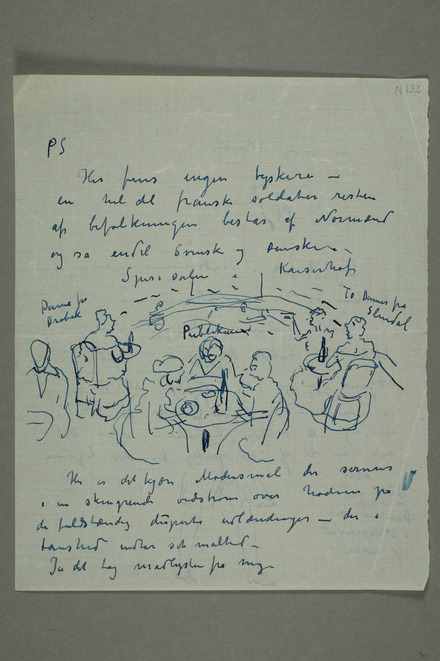 N 132
PS
Her fins ingen tyskere –
en hel del fransk soldater resten
af befolkningen bestas af Normænd
og så endel Svensk og Danskere –
Spisesalen i Kaiserhof
Damer fra
Drøbak
To Damer fra
Slendal
Publikum
Her er det kjære Modersmål der
i en skingrende ordstrøm over hodene på
de fuldstændig utlændinger – der i
taushed indtar sit måltid –
Ja det tog madlysten fra mig